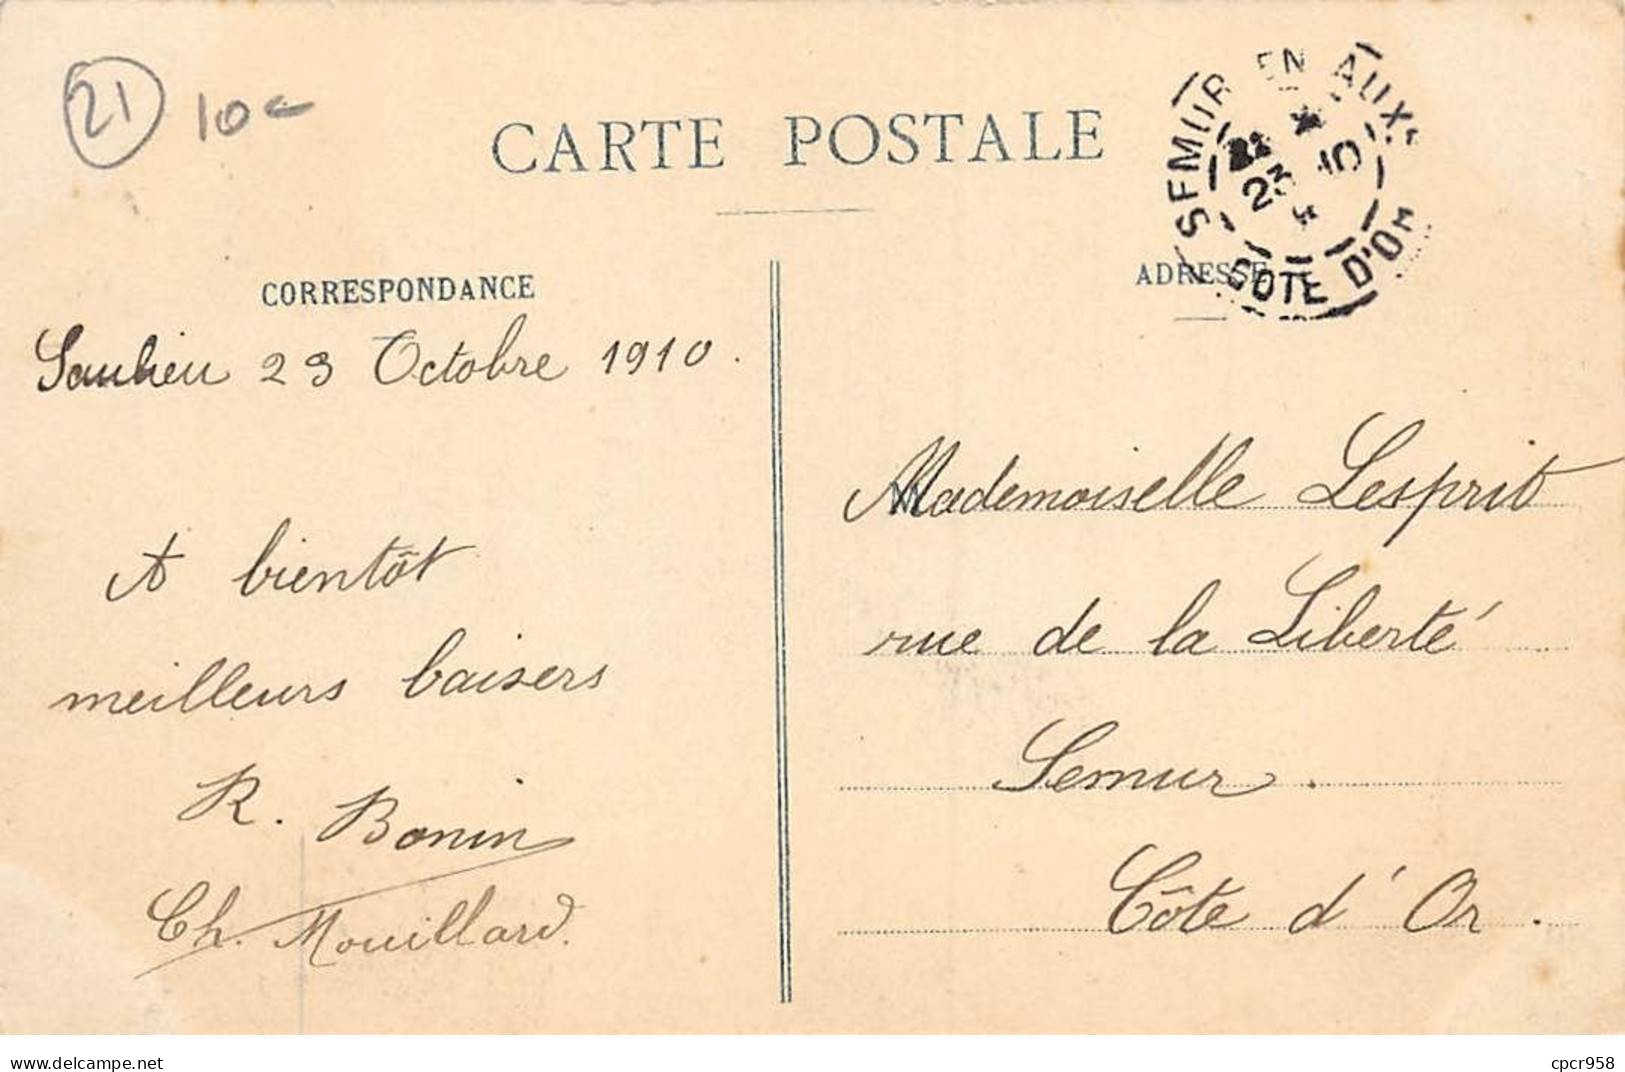 21 10€
CARTE POSTALE
SEMUR EN AUX
23
COTE D'OR
CORRESPONDANCE
ADRESSE
Saulieu 23 Octobre 1910.
A bientôt
meilleurs baisers
R. Bonin
Ch. Mouillard.
Mademoiselle Lesprit
rue de la Liberté
Semur.
Côte d'Or.
delcampe.net
cpcr958